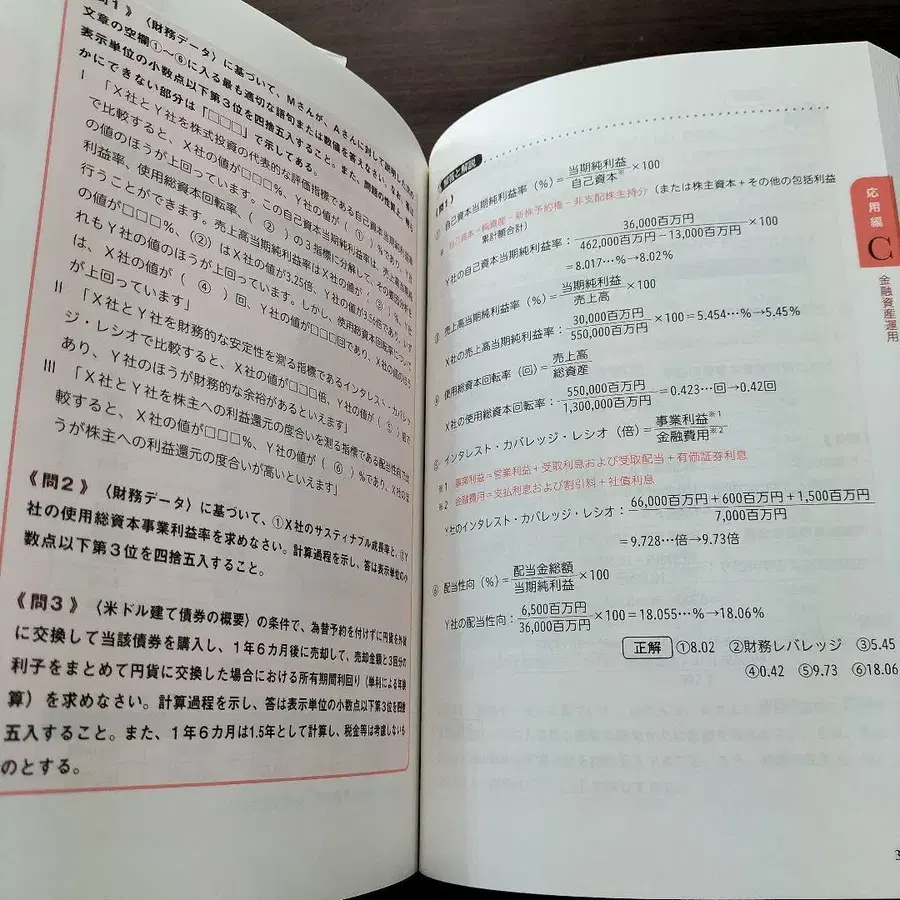 《問1》〈財務データ〉に基づいて、Mさんが、Aさんに対して説明した
文章の空欄①～⑥に入る最も適切な語句または数値を答えなさい。
表示単位の小数点以下第3位を四捨五入すること。また、問題の性質上、明ら
かにできない部分は「□□□」で示してある。
Ⅰ 「X社とY社を株式投資の代表的な評価指標である自己資本当期純利益率
で比較すると、X社の値が□□□%、Y社の値が（ ① ）%であり、
の値のほうが上回っています。この自己資本当期純利益率は、売上高当期純
利益率、使用総資本回転率、（ ② ）の3指標に分解して、その要因分析を
行うことができます。売上高当期純利益率はX社の値が（ ③ ）%、Y社
の値が□□□%、（②）はX社の値が3.25倍、Y社の値が3.56倍であり、いず
れもY社の値のほうが上回っています。しかし、使用総資本回転率について
は、X社の値が（ ④ ）回、Y社の値が□□□回であり、X社の値のほう
が上回っています」
Ⅱ 「X社とY社を財務的な安定性を測る指標であるインタレスト・カバレッ
ジ・レシオで比較すると、X社の値が□□□倍、Y社の値が（ ⑤ ）倍で
あり、Y社のほうが財務的な余裕があるといえます」
Ⅲ 「X社とY社を株主への利益還元の度合いを測る指標である配当性向で比
較すると、X社の値が□□□%、Y社の値が（ ⑥ ）%であり、X社のほ
うが株主への利益還元の度合いが高いといえます」
《問2》〈財務データ〉に基づいて、①X社のサスティナブル成長率と、②Y
社の使用総資本事業利益率を求めなさい。計算過程を示し、答は表示単位の小
数点以下第3位を四捨五入すること。
《問3》〈米ドル建て債券の概要〉の条件で、為替予約を付けずに円貨を外貨
に交換して当該債券を購入し、1年6カ月後に売却して、売却金額と3回分の
利子をまとめて円貨に交換した場合における所有期間利回り（単利による年換
算）を求めなさい。計算過程を示し、答は表示単位の小数点以下第3位を四捨
五入すること。また、1年6カ月は1.5年として計算し、税金等は考慮しないも
のとする。
解答と解説
《問1》
① 自己資本当期純利益率（%）＝当期純利益/自己資本※×100
※ 自己資本＝純資産－新株予約権－非支配株主持分（または株主資本＋その他の包括利益
累計額合計）
Y社の自己資本当期純利益率：36,000百万円/462,000百万円－13,000百万円×100
＝8.017…%→8.02%
③ 売上高当期純利益率（%）＝当期純利益/売上高×100
X社の売上高当期純利益率：30,000百万円/550,000百万円×100＝5.454…%→5.45%
④ 使用総資本回転率（回）＝売上高/総資産
X社の使用総資本回転率：550,000百万円/1,300,000百万円＝0.423…回→0.42回
⑤ インタレスト・カバレッジ・レシオ（倍）＝事業利益※1/金融費用※2
※1 事業利益＝営業利益＋受取利息および受取配当＋有価証券利息
※2 金融費用＝支払利息および割引料＋社債利息
Y社のインタレスト・カバレッジ・レシオ：66,000百万円＋600百万円＋1,500百万円/7,000百万円
＝9.728…倍→9.73倍
⑥ 配当性向（%）＝配当金総額/当期純利益×100
Y社の配当性向：6,500百万円/36,000百万円×100＝18.055…%→18.06%
正解 ①8.02 ②財務レバレッジ ③5.45
④0.42 ⑤9.73 ⑥18.06
応用編
C
金融資産運用
3